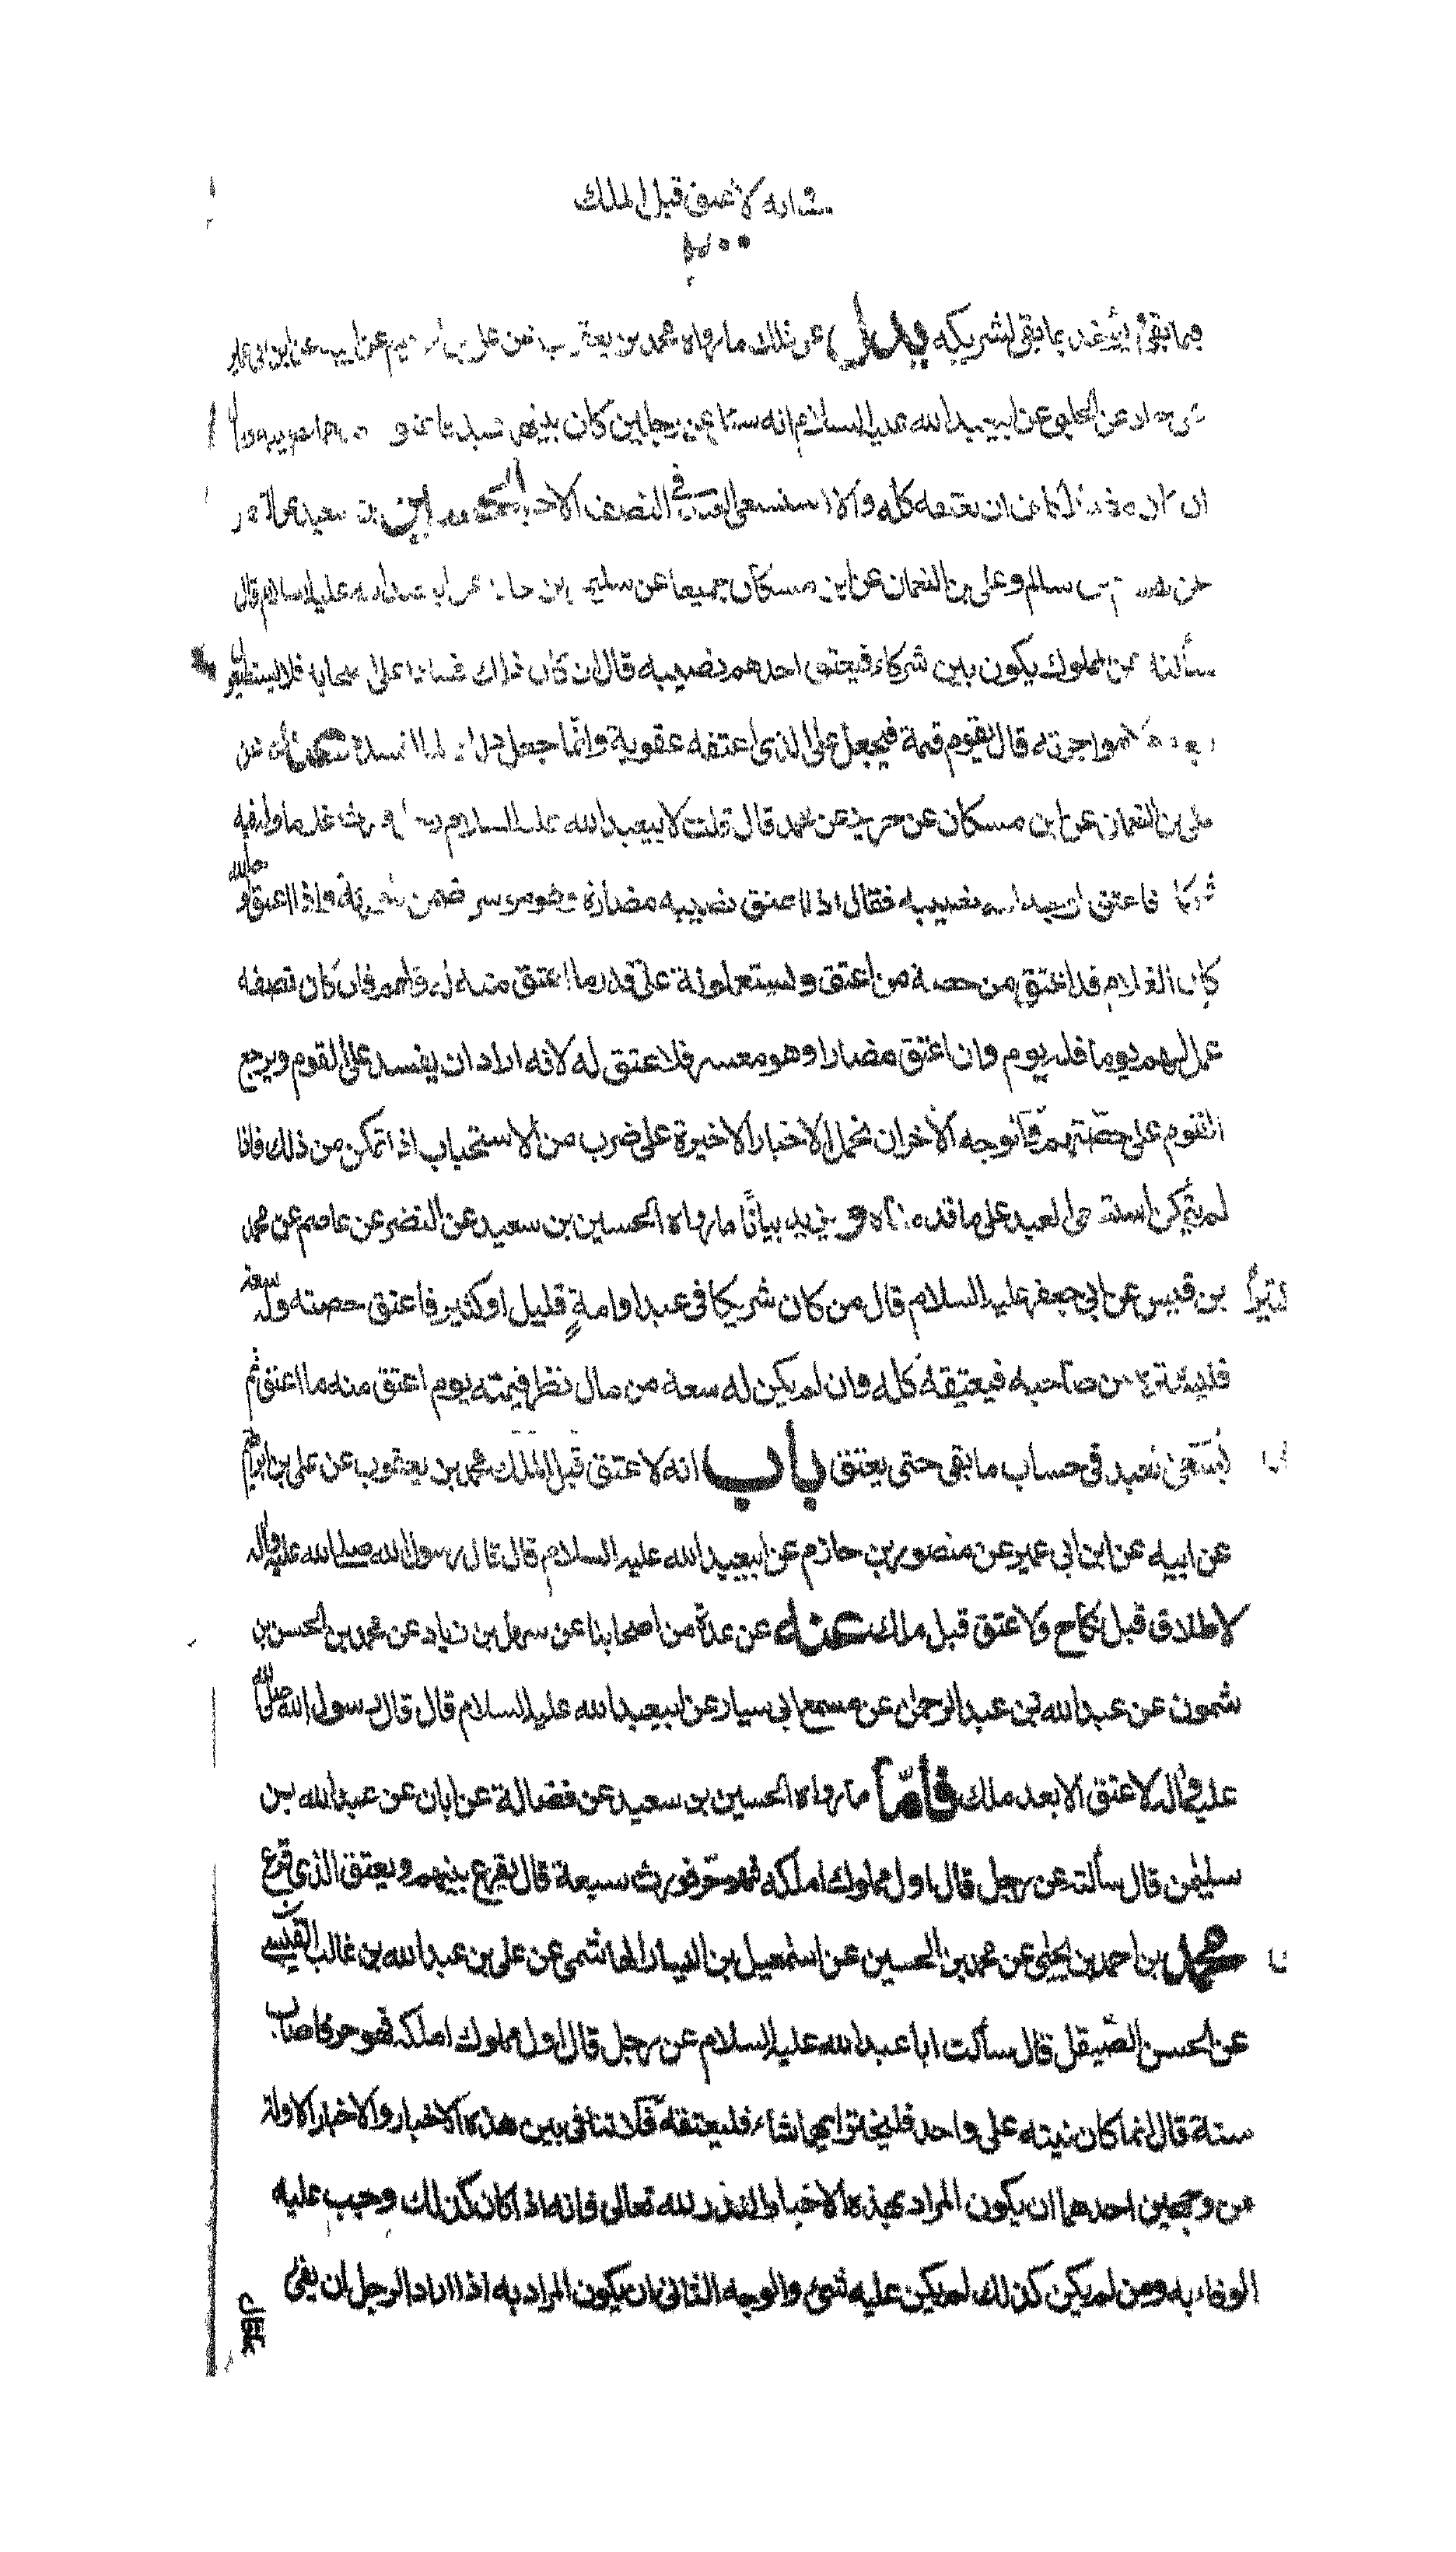 في انه لا عتق قبل الملك
فيما بقي لشريكه يدل على ذلك ما رواه محمد بن يعقوب عن علي بن ابرهيم عن ابيه عن ابن ابي عمير
عن حماد عن الحلبي عن ابيعبد الله عليه السلام انه سئل عن رجلين كان بينهما عبد
ان كان كلف ان يعتقه كله والا استسعى العبد في النصف الاخر الحسين بن سعيد
عن سالم وعلي بن النعمان عن ابن مسكان جميعا عن سليمان بن خالد عن ابيعبد الله عليه السلام قال
سألته عن المملوك يكون بين شركاء فيعتق احدهم نصيبه قال ان ذلك فسادا على اصحابه فلا يستطيعون
بيعه ولا مواجرته قال يقوم قيمة فيجعل على الذي اعتقه عقوبة وانما جعل ذلك لما افسده عنه عن
علي بن النعمان عن ابن مسكان عن حريز عن محمد قال قلت لابيعبد الله عليه السلام رجل ورث غلاما وله فيه
شركاء فاعتق لوجه الله نصيبه فقال اذا اعتق نصيبه مضارة وهو موسر ضمن للورثة واذا اعتق لوجه الله
كان الغلام قد اعتق من حصة من اعتق ويستعملونه على قدر ما اعتق منه له ولهم فان كان نصفه
عمل لهم يوما وله يوم وان اعتق مضارا وهو معسر فلا عتق له لانه اراد ان يفسد على القوم ويرجع
القوم على حصتهم والوجه الاخر ان نحمل الاخبار الاخيرة على ضرب من الاستحباب اذا تمكن من ذلك فاذا
لم يتمكن استسعى العبد على ما قدمناه ويزيد بيانا ما رواه الحسين بن سعيد عن النضر عن عاصم عن محمد
بن قيس عن ابي جعفر عليه السلام قال من كان شريكا في عبد او امة قليل او كثير فاعتق حصته وله سعة
فليشتره من صاحبه فيعتقه كله وان لم يكن له سعة من مال نظر قيمته يوم اعتق منه ما اعتق ثم
يسعى العبد في حساب ما بقي حتى يعتق باب انه لا عتق قبل الملك محمد بن يعقوب عن علي بن ابراهيم
عن ابيه عن ابن ابي عمير عن منصور بن حازم عن ابيعبد الله عليه السلام قال قال رسول الله صلى الله عليه واله
لا طلاق قبل نكاح ولا عتق قبل ملك عنه عن عدة من اصحابنا عن سهل بن زياد عن محمد بن الحسن بن
شمون عن عبد الله بن عبد الرحمن عن مسمع ابي سيار عن ابيعبد الله عليه السلام قال قال رسول الله صلى الله
عليه واله لا عتق الا بعد ملك فاما ما رواه الحسين بن سعيد عن فضالة عن ابان عن عبد الله بن
سليمن قال سألته عن رجل قال اول مملوك املكه فهو حر فورث سبعة قال يقرع بينهم ويعتق الذي قرع
محمد بن احمد بن يحيى عن محمد بن الحسين عن اسمعيل بن اليسار الهاشمي عن علي بن عبد الله بن غالب القيسي
عن الحسن الصيقل قال سألت ابا عبد الله عليه السلام عن رجل قال اول مملوك املكه فهو حر فاصاب
ستة قال انما كان نيته على واحد فليختر ايهما شاء فليعتقه فلا تنافي بين هذه الاخبار والاخبار الاولة
من وجهين احدهما ان يكون المراد بهذه الاخبار النذر لله تعالى فانه اذا كان كذلك وجب عليه
الوفاء به ومن لم يكن كذلك لم يكن عليه شئ والوجه الثاني ان يكون المراد به اذا اراد الرجل ان يفي